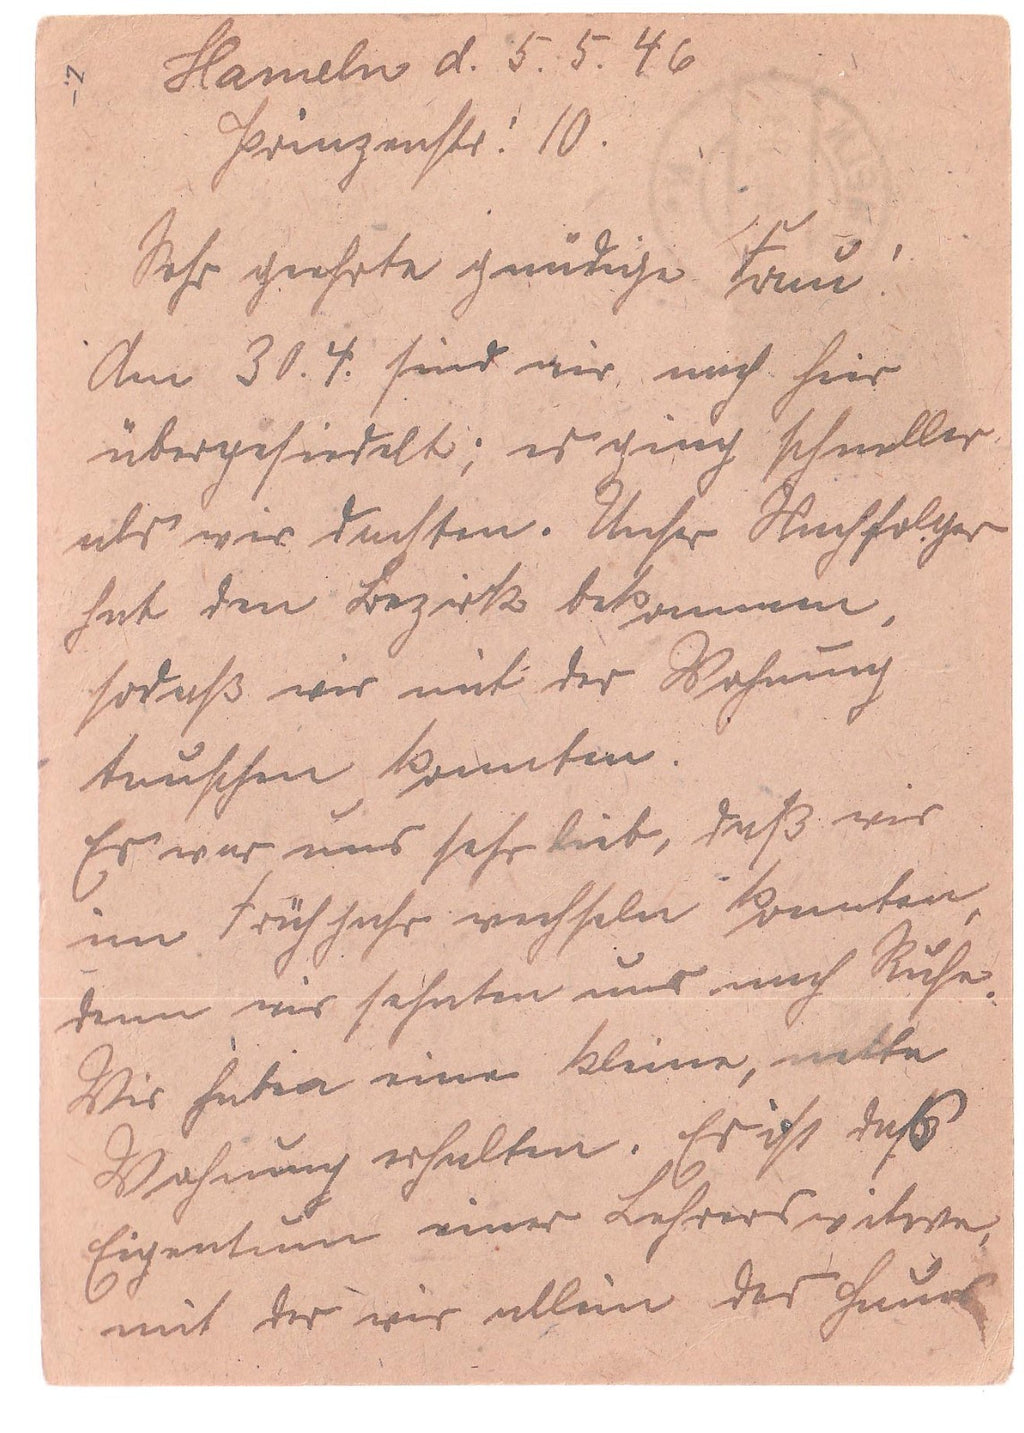 Hameln d. 5. 5. 46
Prinzenstr. 10.
Sehr geehrte gnädige Frau!
Am 30. 4. sind wir nach hier
übergesiedelt; es ging schneller
als wir dachten. Unser Nachfolger
hat den Bezirk bekommen,
sodaß wir mit der Wohnung
tauschen konnten.
Es war uns sehr lieb, daß wir
im Frühjahr wechseln konnten,
denn wir sehnten uns nach Ruhe.
Wir haben eine kleine, nette
Wohnung erhalten. Es ist daß
Eigentum einer Lehrerswitwe,
mit der wir allein das Haus